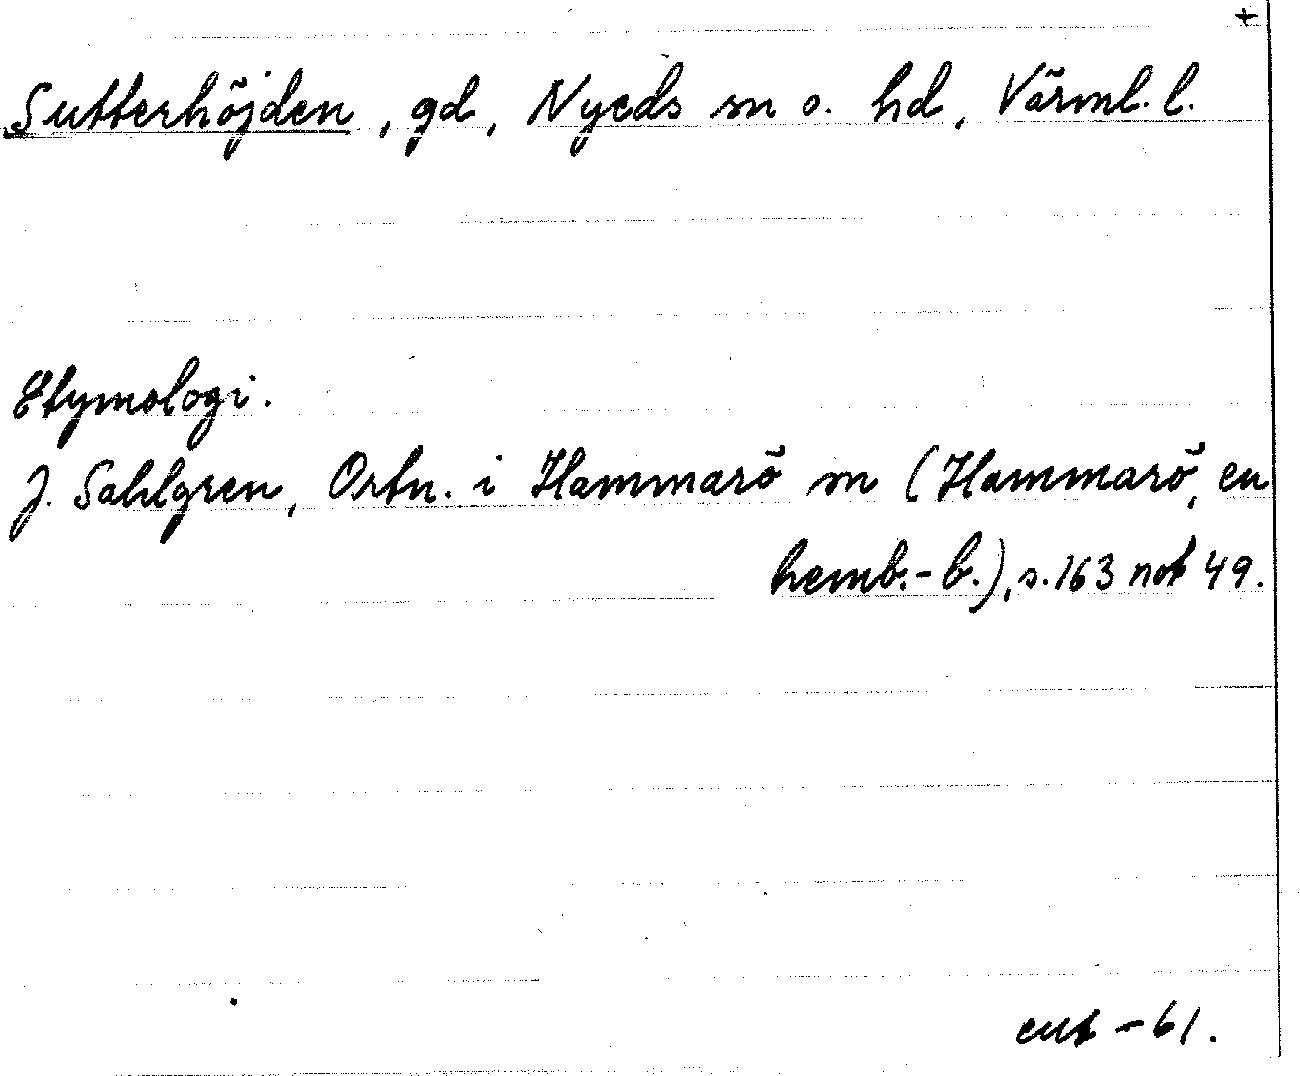 +
Sutterhöjden, gd, Nyeds sn o. hd, Värml. l.
Etymologi.
J. Sahlgren, Ortn. i Hammarö sn (Hammarö, en
hemb.-b.), s. 163 not 49.
-61.